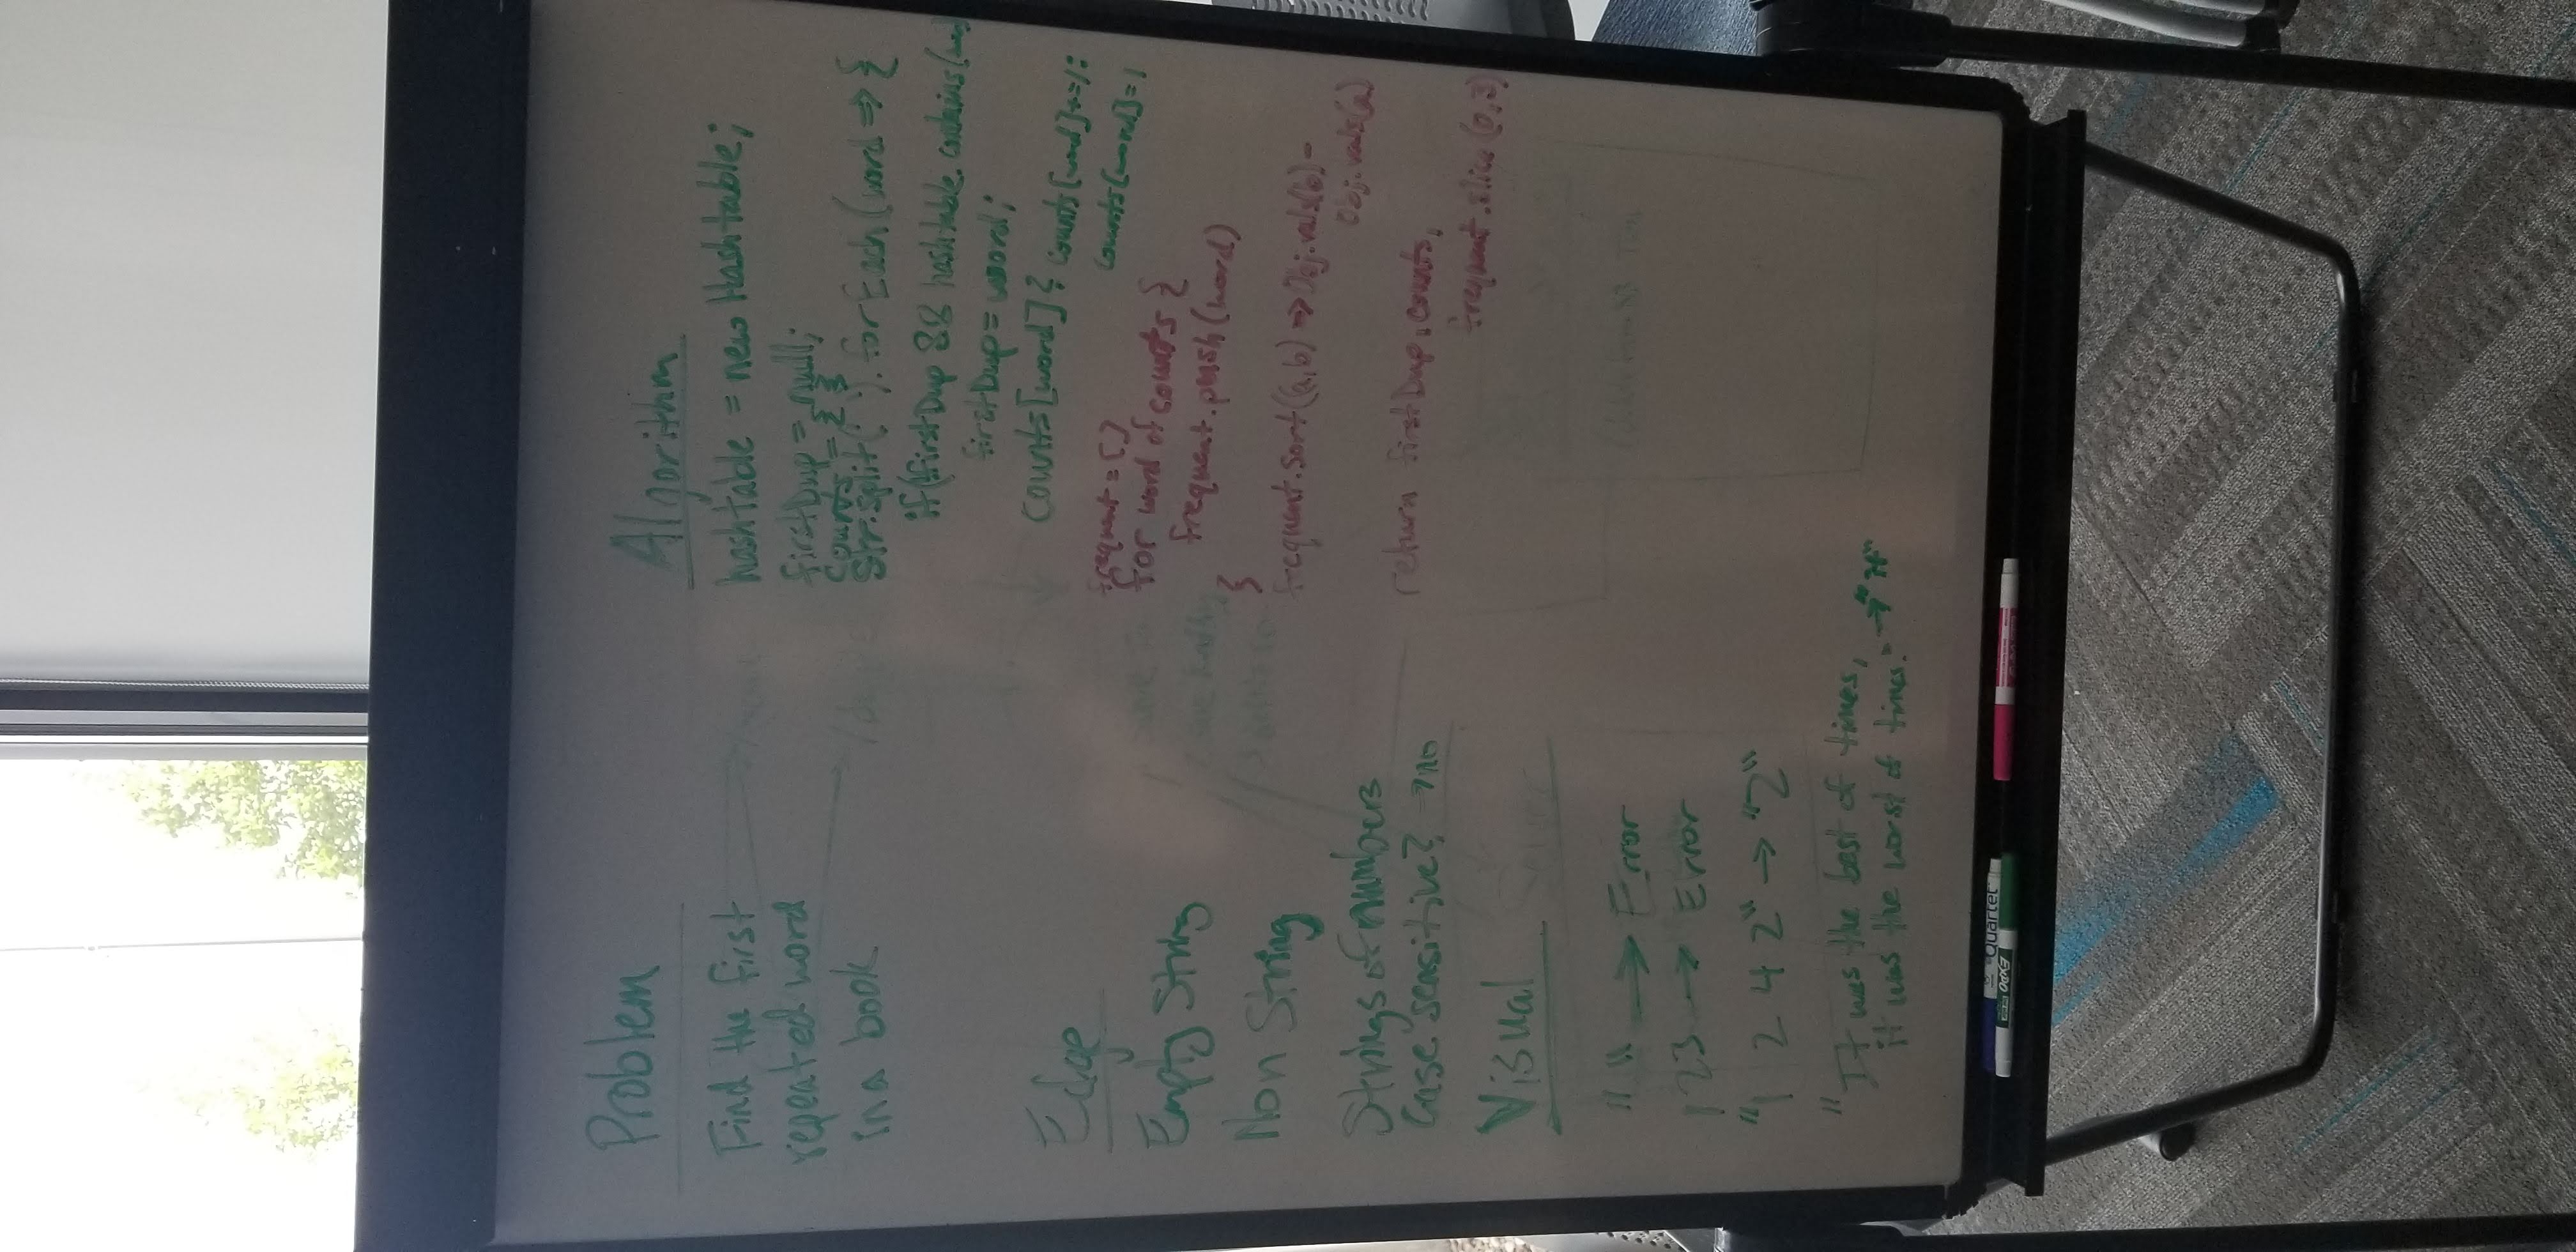 Problem
Find the first
repeated word
in a book
Edge
Empty String
Non String
Strings of numbers
Case sensitive? → no
Visual
" " → Error
123 → Error
"1 2 4 2" → "2"
"It was the best of times,
it was the worst of times." → "it"
Algorithm
hashtable = new Hashtable;
firstDup = null;
counts = { }
str.split(' ').forEach(word => {
if(!firstDup && hashtable.contains(word
firstDup = word;
counts[word] ? counts[word]+=1 :
counts[word]=1
frequent = []
for word of counts {
frequent.push(word)
}
frequent.sort((a,b) => Obj.vals(b) -
Obj.vals(a)
return firstDup, counts,
frequent.slice(0,3)
Quartet
EXPO